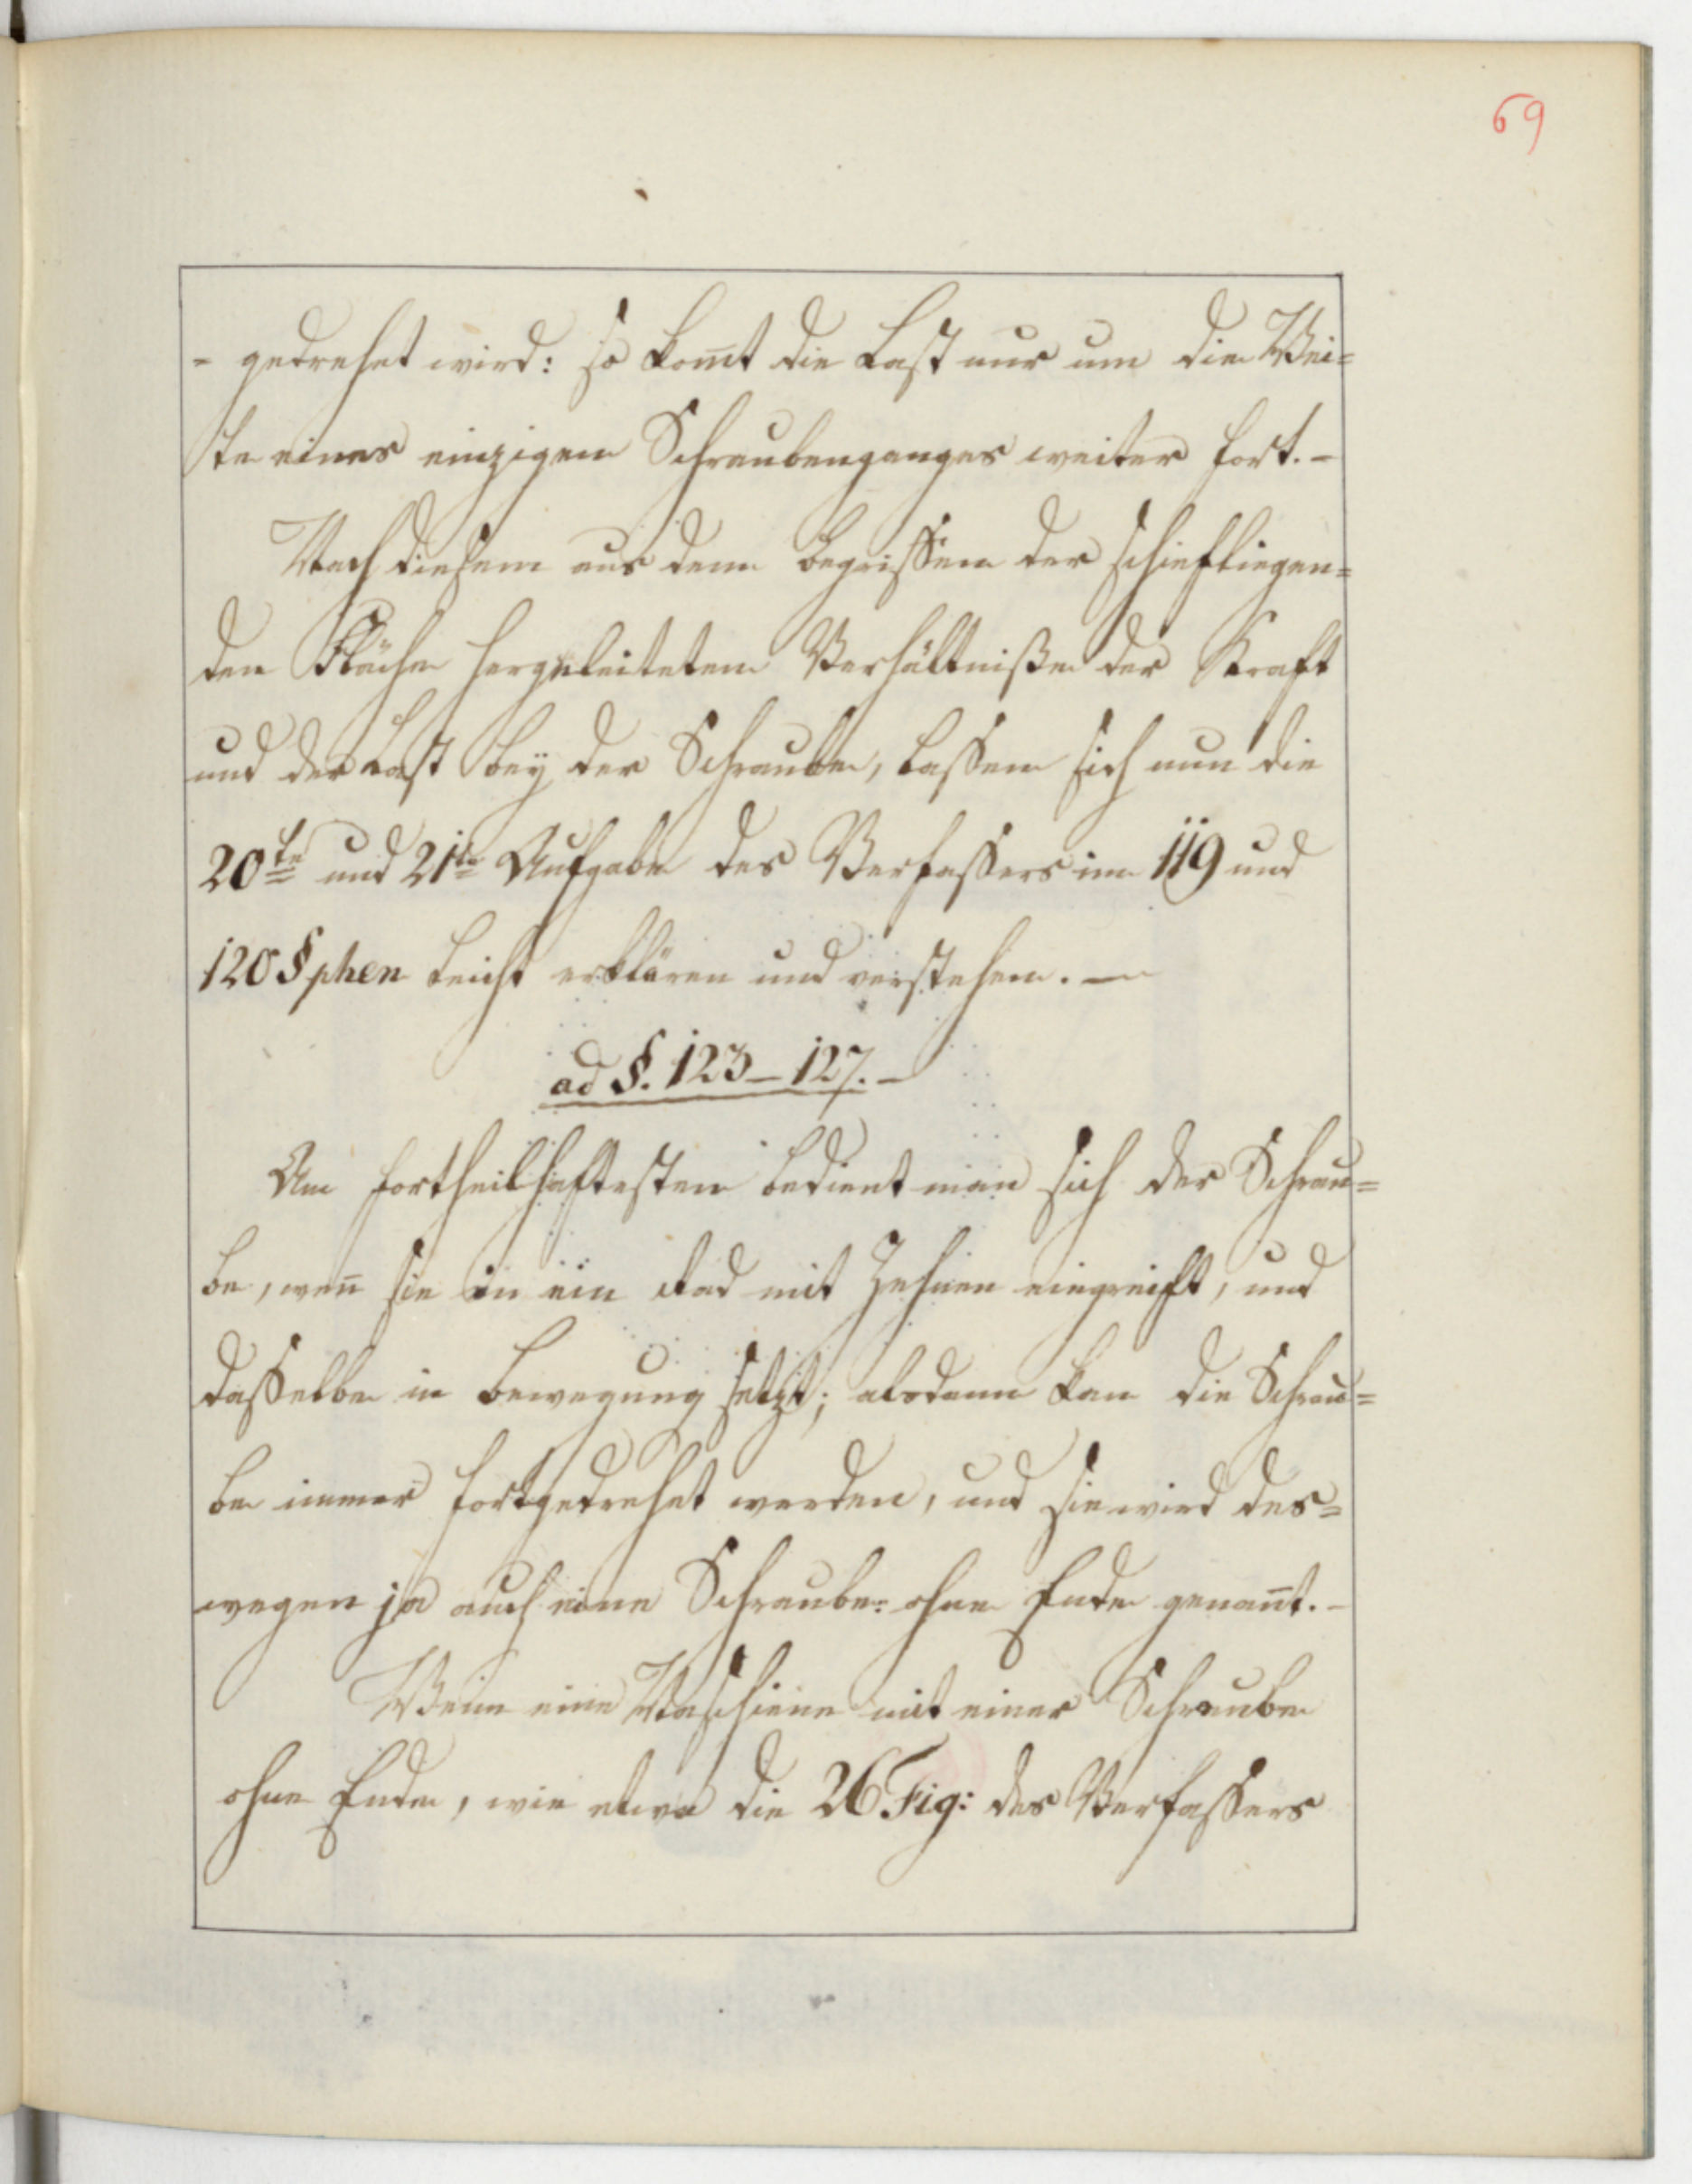 69
- gedrehet wird: so kom̄t die Last nur um die Wei=
te eines einzigen Schraubenganges weiter fort. -
Nach diesem aus dem Begriffen der schiefliegen=
den Fläche hergeleitetem Verhältniße der Kraft
und der Last bey der Schraube, lassen sich nun die
20te und 21te Aufgabe des Verfassers im 119 und
120 §phen leicht erklären und verstehen. —
ad §. 123 – 127. -
Am fortheilhaftesten bedient man sich der Schrau=
be, wen̄ sie in ein Rad mit Zehnen eingreift, und
dasselbe in Bewegung setzt; alsdann kan die Schrau=
be immer fortgedrehet werden, und sie wird des=
wegen ja auch eine Schraube ohne Ende genan̄t. -
Wenn eine Maschiene mit einer Schraube
ohne Ende, wie etwa die 26 Fig: des Verfassers